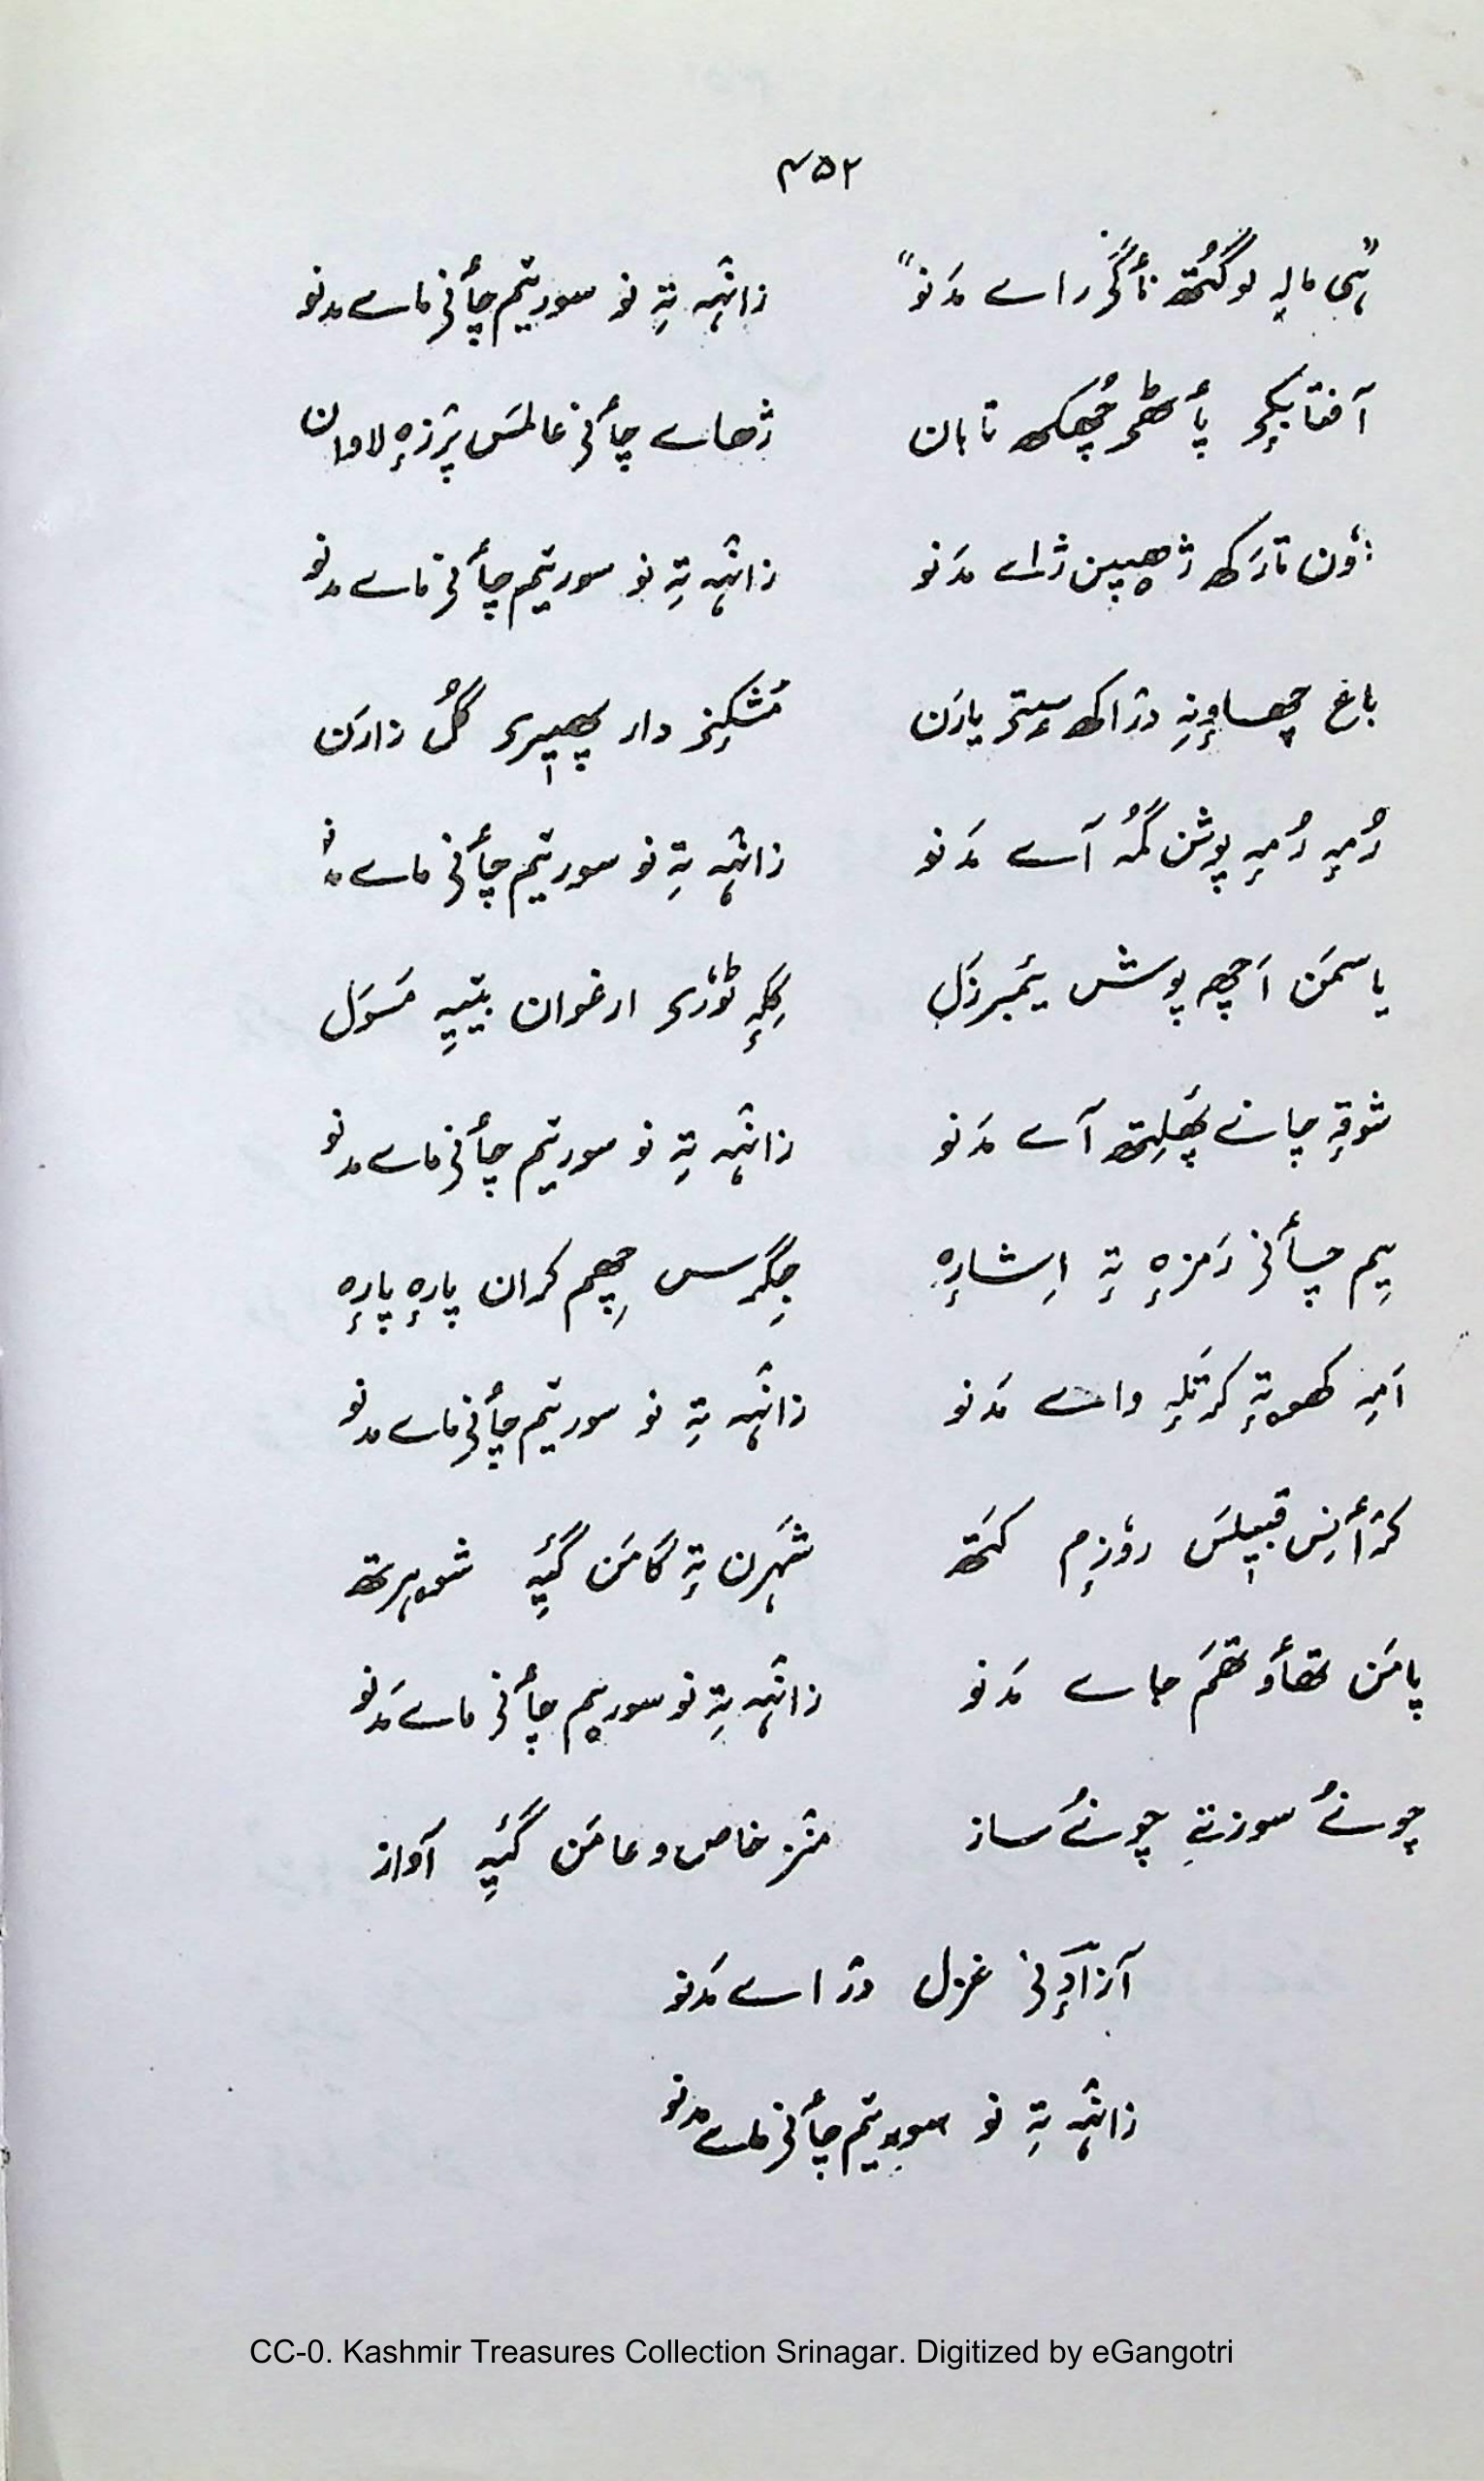 ۴۵۲
"ہی مالہِ لوگُتھ نٲگۍ راے مَدنو" زانٛہہ تہِ نو سورِیم چٲنۍ ماے مدنو
آفتابٕکۍ پٲٹھۍ چُھکھ تابان ژھاے چٲنۍ عالمَس پرٛزٕہ لاوان
زوٗن تارَکھ ژھیپن ژاے مَدنو زانٛہہ تہِ نو سورِیم چٲنۍ ماے مدنو
باغ چھاونہِ دراکھ سٟتۍ یارَن مُشکِنۍ دار پھیٖرۍ گُل زارَن
رُمہٕ رُمہٕ پوشن گُمہ آے مَدنو زانٛہہ تہِ نو سورِیم چٲنۍ ماے مدنو
یاسمَن اَچھ پوش یَمبرزَل کِلہٕ ٹوٗرۍ ارغوان بییہِ مَسوَل
شوقہٕ چانے پھَلِتھ آے مَدنو زانٛہہ تہِ نو سورِیم چٲنۍ ماے مدنو
یِم چٲنۍ رَمزٕہ تہٕ اِشارٕہ جِگرس چِھم کران پارٕہ پارٕہ
اَمہِ کھوتہٕ کرتَلہٕ واے مَدنو زانٛہہ تہِ نو سورِیم چٲنۍ ماے مدنو
کرٛٲنِس قبیلَس روٗزِم کَتھ شہرن تہٕ گامَن گَیہِ شوہرتھ
پامَن تھٲوتھَم جاے مَدنو زانٛہہ تہِ نو سورِیم چٲنۍ ماے مَدنو
چونُے سوز تہٕ چونُے ساز منٛز خاص و عامَن گَیہِ آواز
آزادٕنۍ غزل دراے مَدنو
زانٛہہ تہِ نو سورِیم چٲنۍ ماے مدنو
CC-0. Kashmir Treasures Collection Srinagar. Digitized by eGangotri